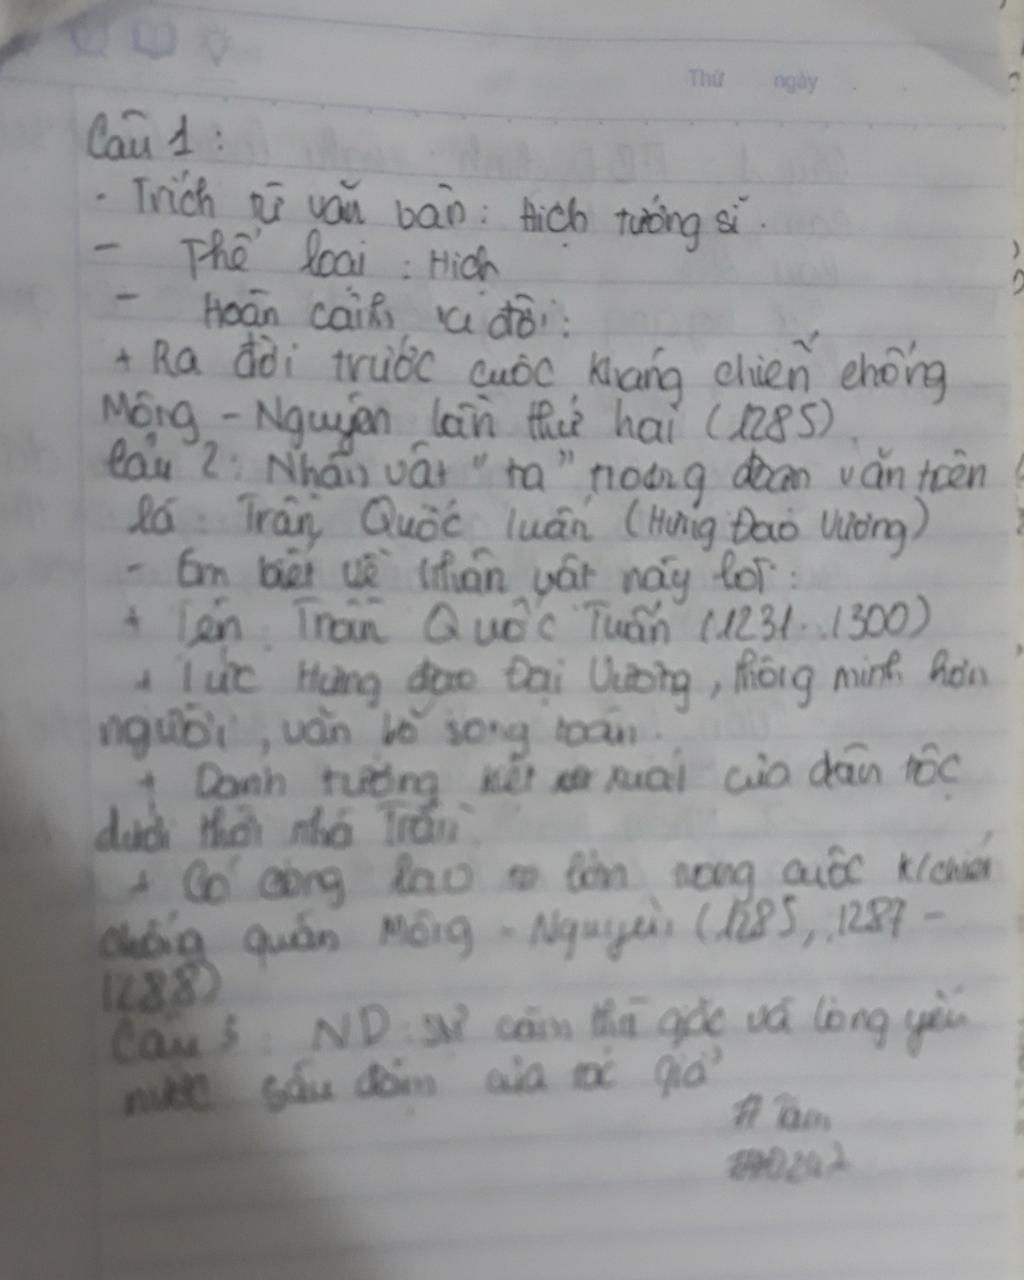 Thứ ngày
Câu 1 :
- Trích từ văn bản : Hịch tướng sĩ.
- Thể loại : Hịch
- Hoàn cảnh ra đời :
+ Ra đời trước cuộc kháng chiến chống
Mông - Nguyên lần thứ hai (1285)
Câu 2 : Nhân vật "ta" trong đoạn văn trên
là : Trần Quốc Tuấn (Hưng Đạo Vương)
- Em biết về nhân vật này là :
+ Tên : Trần Quốc Tuấn (1231..1300)
+ Tức Hưng đạo Đại Vương, thông minh hơn
người, văn võ song toàn.
+ Danh tướng kiệt xuất của dân tộc
dưới thời nhà Trần
+ Có công lao to lớn trong cuộc k/chiến
chống quân Mông - Nguyên (1285, 1287 -
1288)
Câu 3 : ND : sự căm thù giặc và lòng yêu
nước sâu đậm của tác giả
# Tam